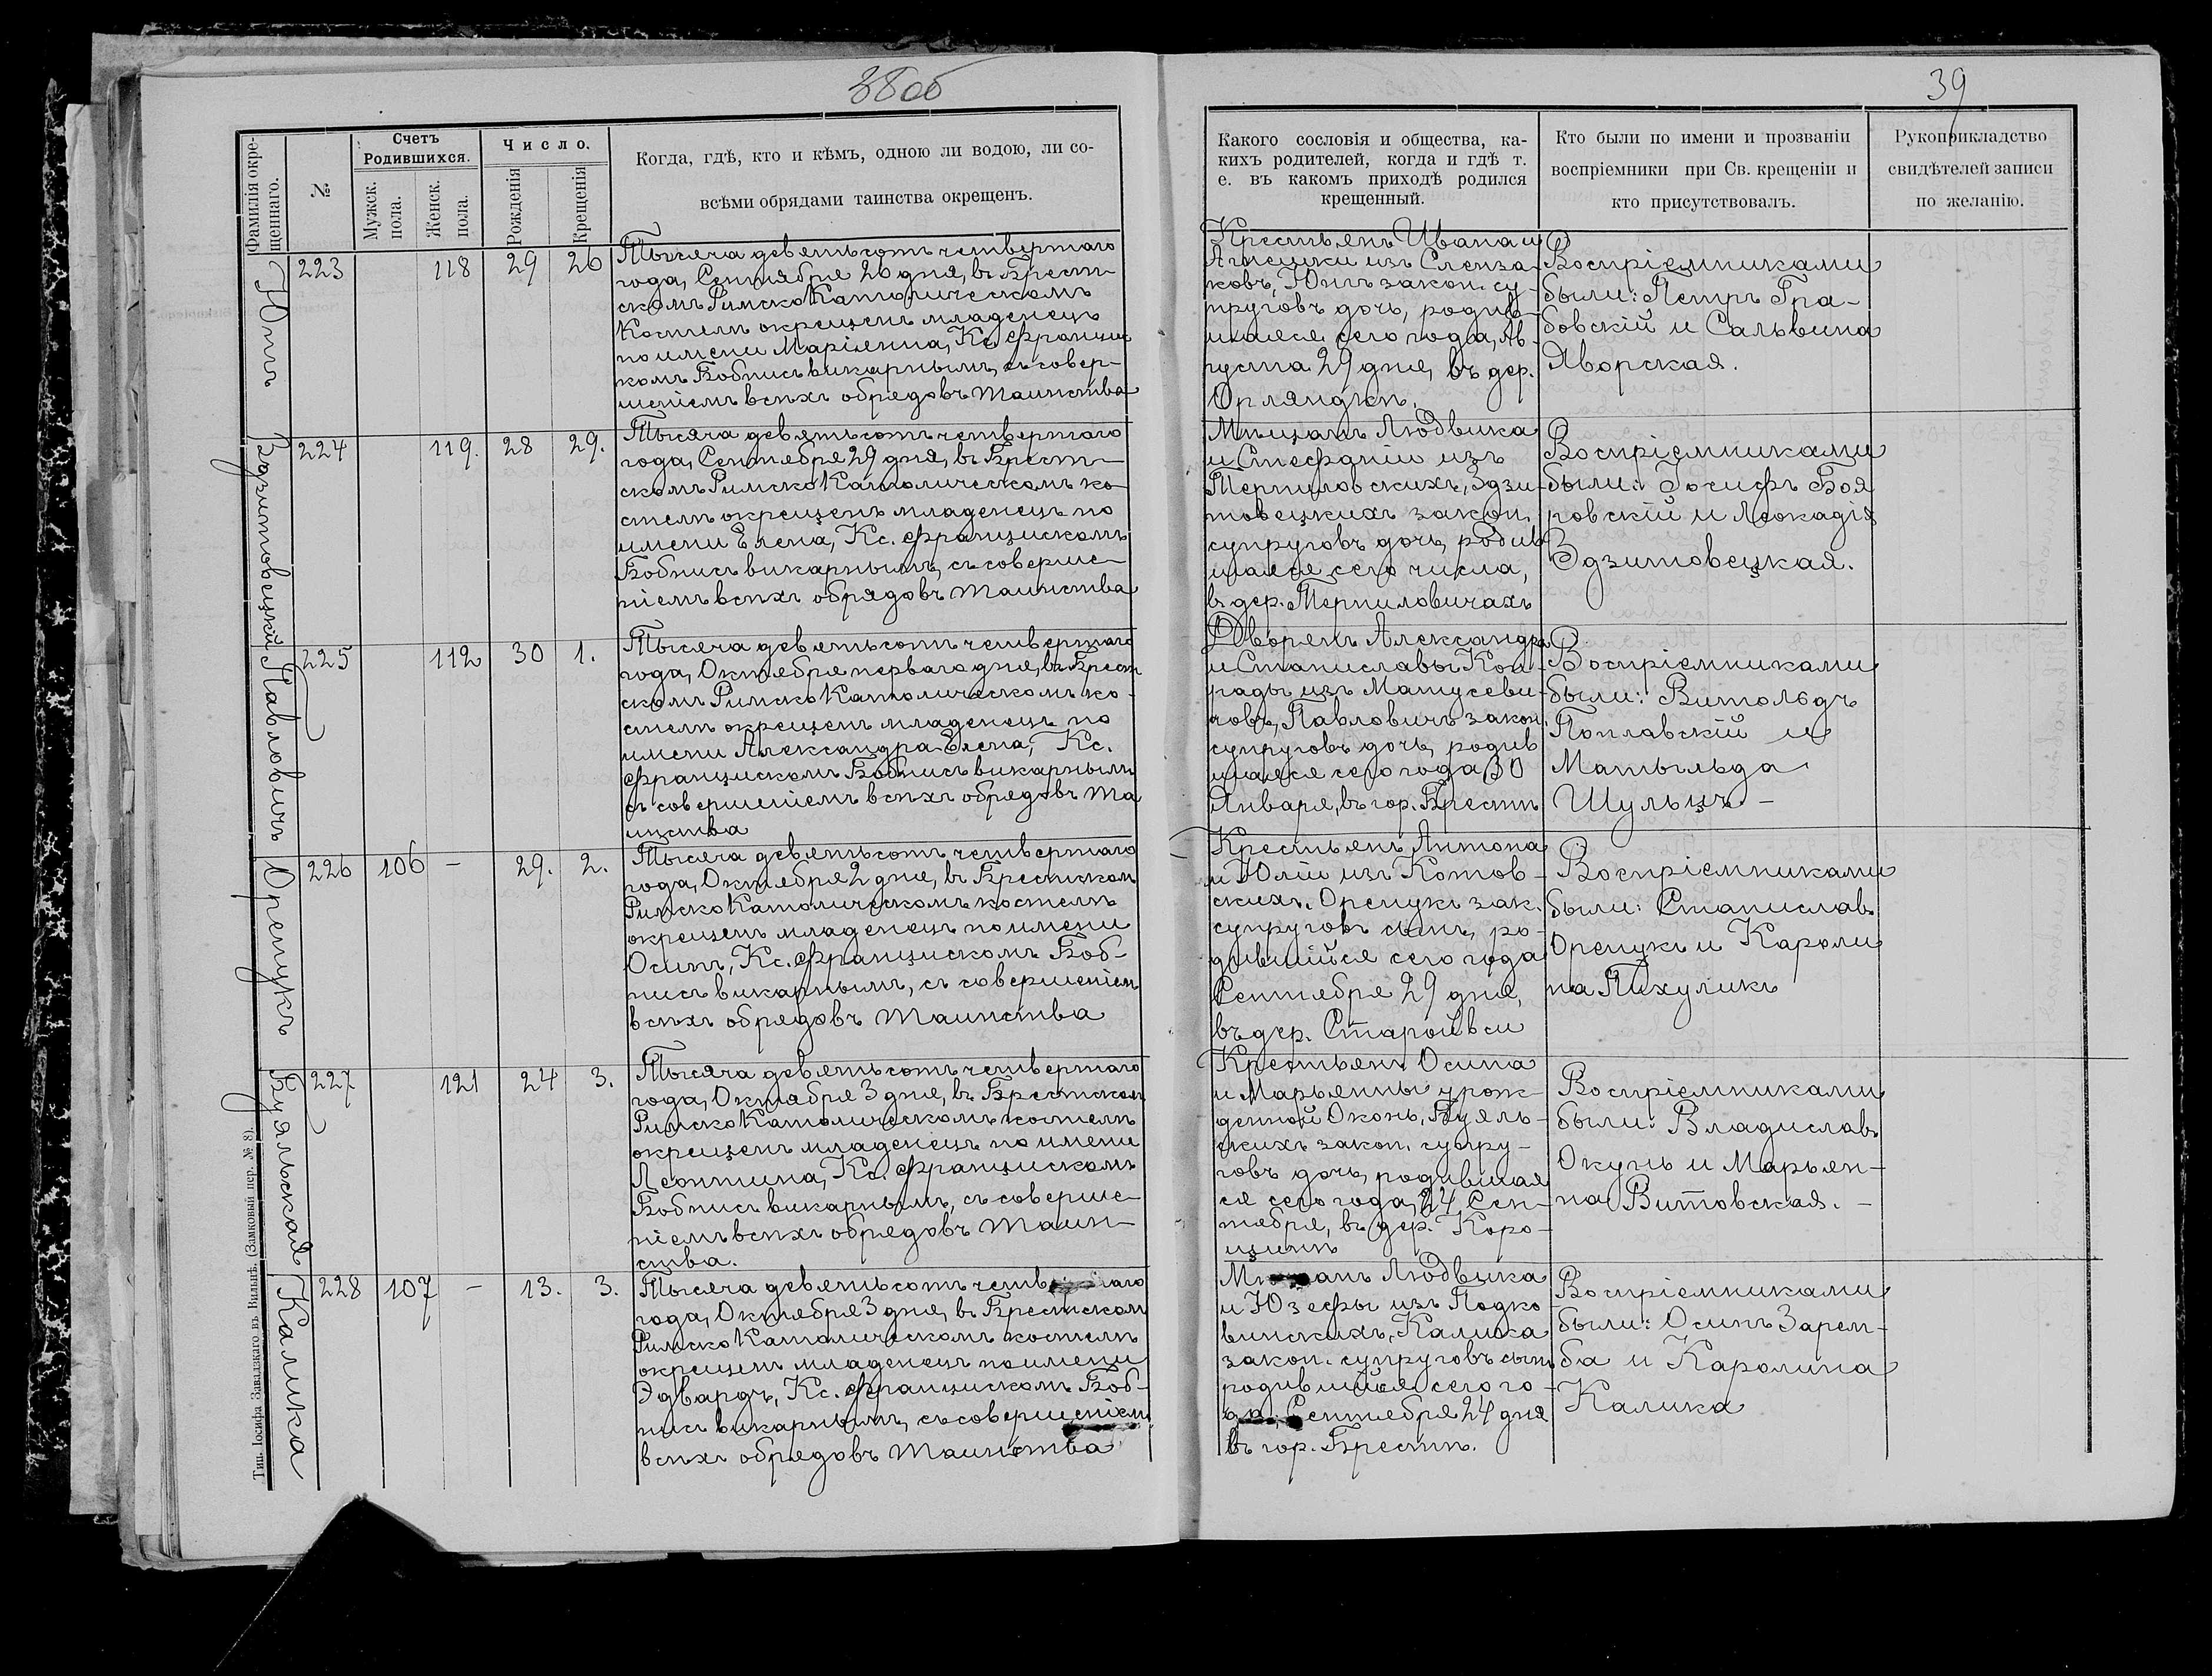 38об
39
Фамилія окре-
щеннаго.
№
Счетъ
Родившихся.
Мужск.
пола.
Женск.
пола.
Число.
Рожденія
Крещенія
Когда, гдѣ, кто и кѣмъ, одною ли водою, ли со-
всѣми обрядами таинства окрещенъ.
Какого сословія и общества, ка-
кихъ родителей, когда и гдѣ т.
е. въ какомъ приходѣ родился
крещенный.
Кто были по имени и прозванію
воспріемники при Св. крещеніи и
кто присутствовалъ.
Рукоприкладство
свидѣтелей записи
по желанію.
Юшъ
223
118
29
26
Тысяча девятьсотъ четвертаго
года, Сентября 26 дня, въ Брест-
скомъ Римско Католическомъ
Костелѣ окрещенъ младенецъ
по имени Маріянна, Кс. Францис
комъ Бобнисъ викарнымъ, съ совер-
шеніемъ всѣхъ обрядовъ Таинства
Крестьянъ Ивана и
Агнешки изъ Слепза-
ковъ, Юшъ закон. су-
пруговъ дочь, родив-
шаяся сего года, Ав-
густа 29 дня, въ дер.
Орляндкѣ.
Воспріемниками
были: Петръ Гра-
бовскій и Сальвина
Яворская.
Здзитовецкій
224
119.
28
29.
Тысяча девятьсотъ четвертаго
года, Сентября 29 дня, въ Брест-
скомъ Римско Католическомъ ко-
стелѣ окрещенъ младенецъ по
имени Елена, Кс. Францискомъ
Бобнисъ викарнымъ, съ соверше-
ніемъ всѣхъ обрядовъ Таинства
Мѣщанъ Людвика
и Стефаніи изъ
Терпиловскихъ, Здзи-
товецкихъ закон.
супруговъ дочь, родив
шаяся сего числа,
въ дер. Терпиловичахъ
Воспріемниками
были: Іосифъ Боя
ровскій и Леокадія
Здзитовецкая.
Павловичъ
225
112
30
1.
Тысяча девятьсотъ четвертаго
года, Октября перваго дня, въ Брест
скомъ Римско Католическомъ ко-
стелѣ окрещенъ младенецъ по
имени Александра-Елена, Кс.
Францискомъ Бобнисъ викарнымъ
съ совершеніемъ всѣхъ обрядовъ Та
инства
Дворянъ Александра
и Станиславы Кон-
рады изъ Матусеви-
човъ, Павловичъ закон.
супруговъ дочь, родив
шаяся сего года 30
Января, въ гор. Брестѣ
Воспріемниками
были: Витольдъ
Поплавскій и
Матыльда
Шульцъ. -
Оренукъ
226
106
-
29.
2.
Тысяча девятьсотъ четвертаго
года, Октября 2 дня, въ Брестском
Римско Католическомъ костелѣ
окрещенъ младенецъ по имени
Осипъ, Кс. Францискомъ Боб-
нисъ викарнымъ, съ совершеніем
всѣхъ обрядовъ Таинства
Крестьянъ Антона
и Юліи изъ Котов-
скихъ, Оренукъ зак.
супруговъ сынъ, ро-
дившійся сего года
Сентября 29 дня,
въ дер. Старойвси
Воспріемниками
были: Станиславъ
Оренукъ и Кароли
на Пахуликъ
Буяльская
227
121
24
3.
Тысяча девятьсотъ четвертаго
года, Октября 3 дня, въ Брестском
Римско Католическомъ костелѣ
окрещенъ младенецъ по имени
Леонтина, Кс. Францискомъ
Бобнисъ викарнымъ, съ соверше-
ніемъ всѣхъ обрядовъ Таин-
ства.
Крестьянъ Осипа
и Марьянны урож-
денной Оконь, Буяль-
скихъ закон. супру-
говъ дочь, родившая
ся сего года, 24 Сен-
тября, въ дер. Коро-
щинѣ
Воспріемниками
были: Владиславъ
Окунь и Марьян-
на Витовская. -
Калика
228
107
-
13.
3.
Тысяча девятьсотъ четвертаго
года, Октября 3 дня, въ Брестском
Римско Католическомъ костелѣ
окрещенъ младенецъ по имени
Эдвардъ, Кс. Францискомъ Боб-
нисъ викарнымъ, съ совершеніем
всѣхъ обрядовъ Таинства
Мѣщанъ Людвика
и Юзефы изъ Подко
винскихъ, Калика
закон. супруговъ сынъ
родившійся сего го-
да, Сентября 24 дня
въ гор. Брестѣ.
Воспріемниками
были: Осипъ Зарем-
ба и Каролина
Калика
Тип. Іосифа Завадзкаго въ Вильнѣ. (Замковый пер. № 8).